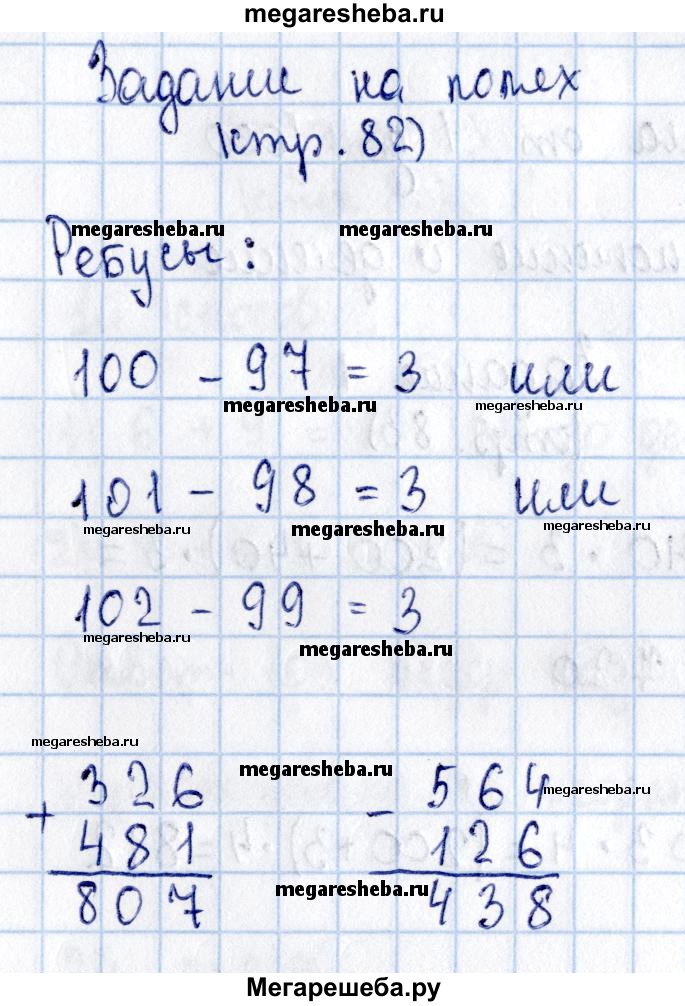 megaresheba.ru
Задание на полях
(стр. 82)
megaresheba.ru megaresheba.ru
Ребусы:
100 - 97 = 3 или
megaresheba.ru megaresheba.ru
101 - 98 = 3 или
megaresheba.ru megaresheba.ru megaresheba.ru
102 - 99 = 3
megaresheba.ru megaresheba.ru
megaresheba.ru megaresheba.ru
+ 326 - 564
megaresheba.ru
481 126
807 438
megaresheba.ru
Мегарешеба.ру